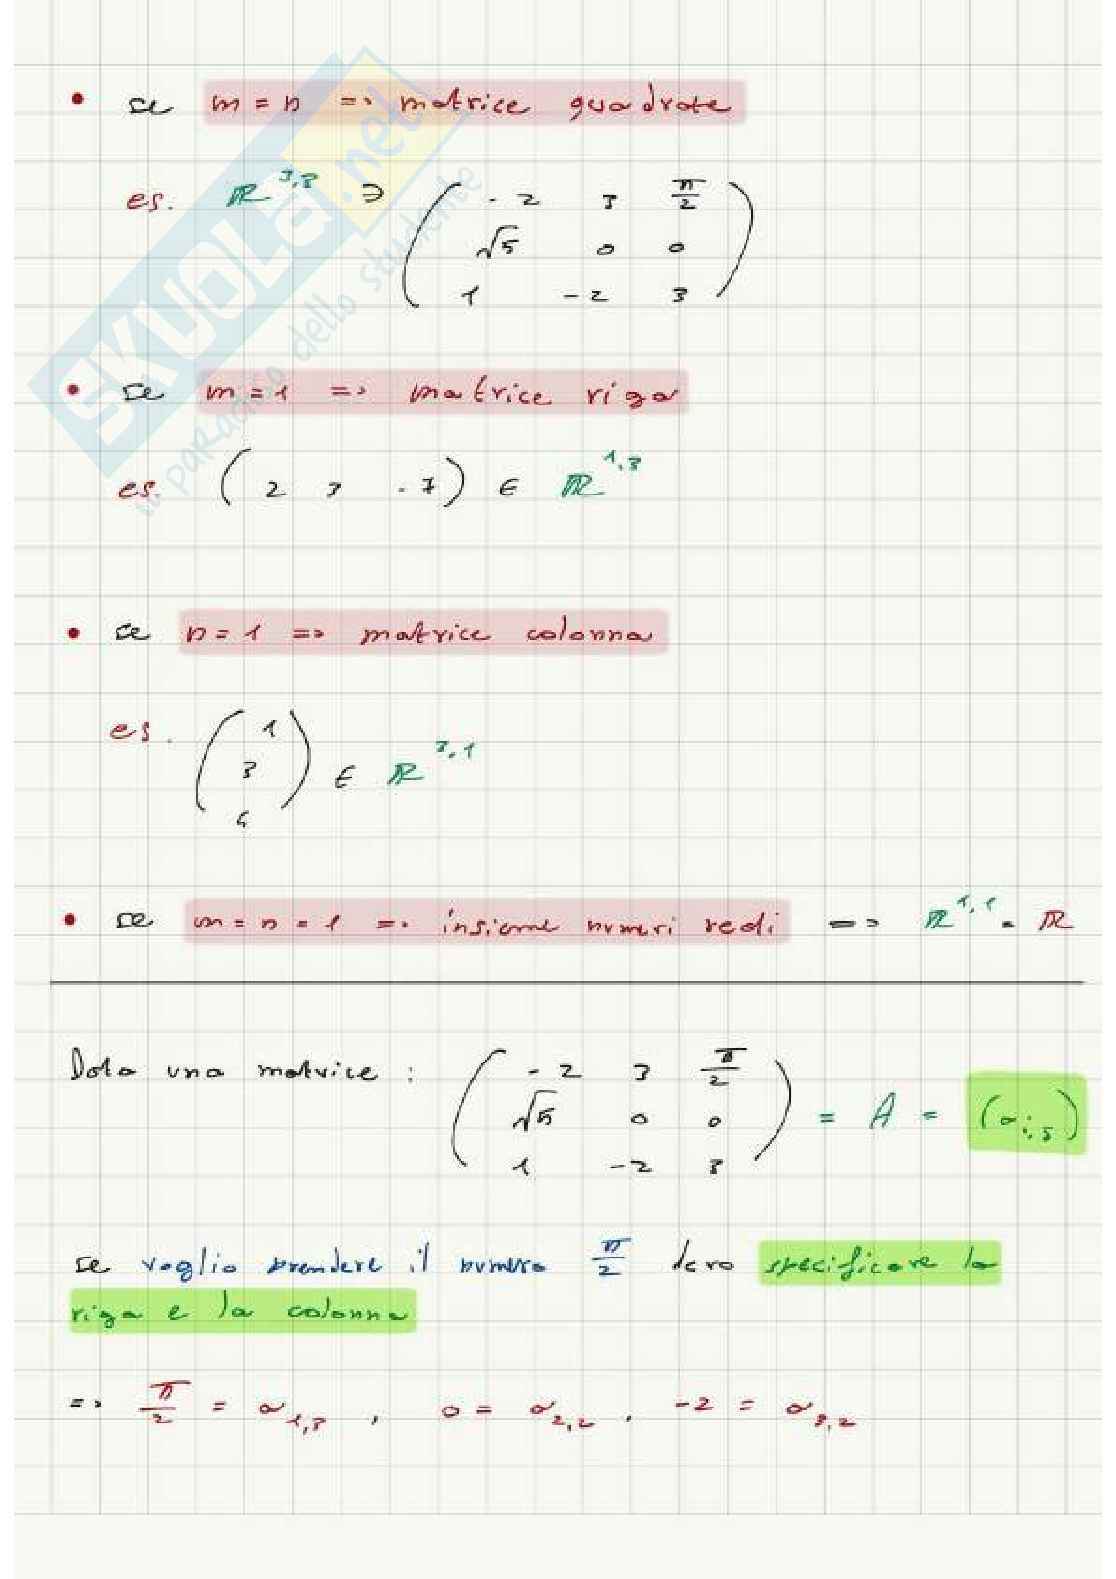 • se m = n => matrice quadrata
es. ℝ^3,3 ∋ ( -2 3 π/2
√5 0 0
1 -2 3 )
• se m = 1 => matrice riga
es. ( 2 3 -7 ) ∈ ℝ^1,3
• se n = 1 => matrice colonna
es. ( 1
3
) ∈ ℝ^3,1
• se m = n = 1 => insieme numeri reali => ℝ^1,1 = ℝ
Data una matrice : ( -2 3 π/2
√5 0 0 = A = (a i,j)
1 -2 3 )
se voglio prendere il numero π/2 devo specificare la
riga e la colonna
=> π/2 = a 1,3 , 0 = a 2,2 , -2 = a 3,2
SKUOLA.net
il paradiso dello studente